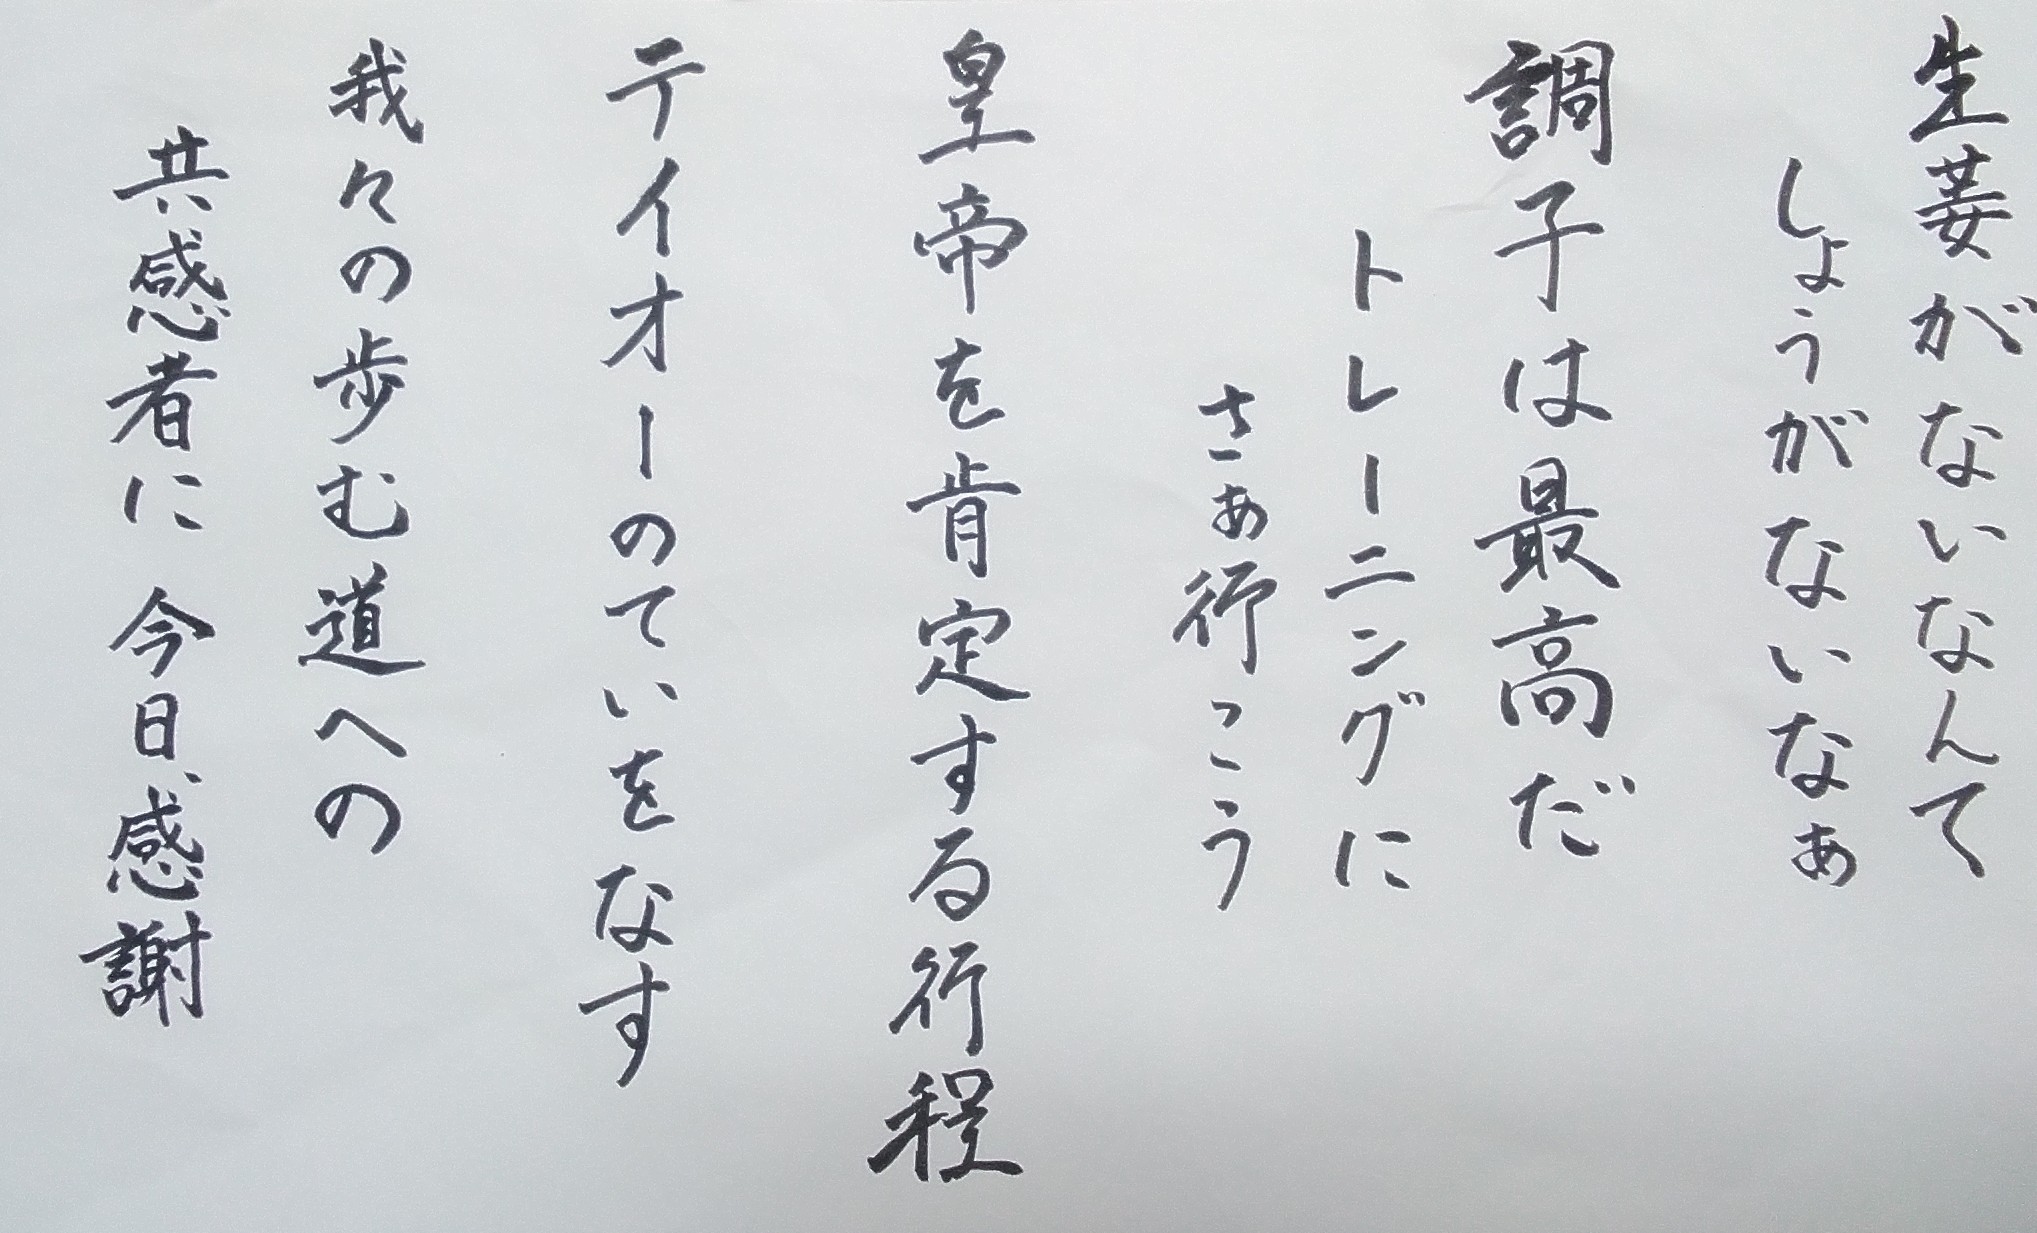 生姜がないなんて
しょうがないなぁ
調子は最高だ
トレーニングに
さぁ行こう
皇帝を肯定する行程
テイオーのていをなす
我々の歩む道への
共感者に今日、感謝